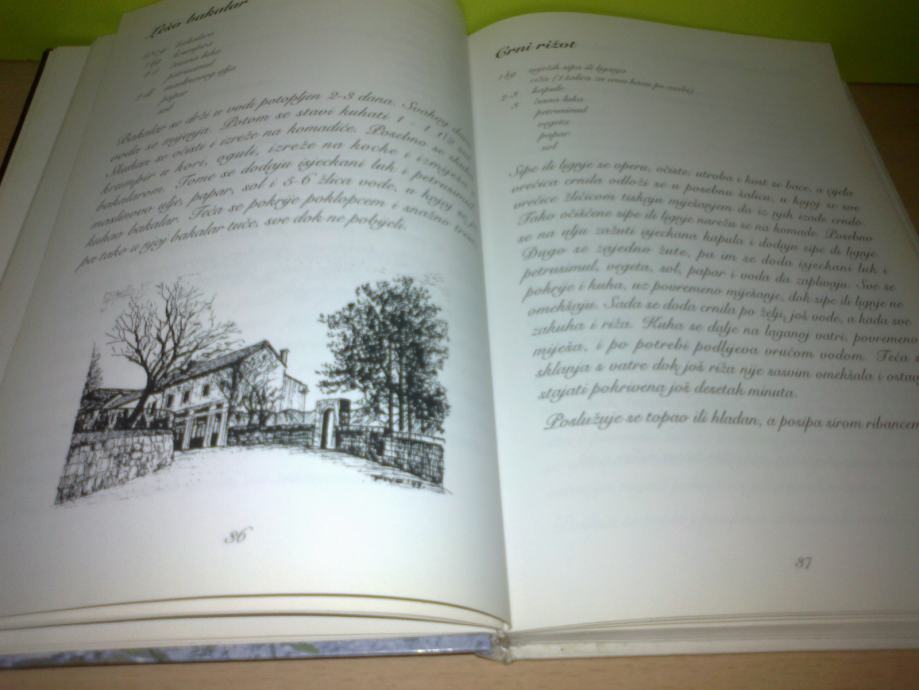 bakalar
krumpira
žmna luka
petrusimul
maslinovog ulja
papar
sol
Bakalar se drži u vodi potopljen 2-3 dana. Svakog dana
voda se mijenja. Potom se stavi kuhati 1 - 1 1/2 sat.
Hladan se očisti i izreže na komadiće. Posebno se skuha
krumpir u kori, oguli, izreže na kocke i izmiješa s
bakalarom. Tome se dodaju isjeckani luk i petrusimul,
maslinovo ulje, papar, sol i 5-6 žlica vode, u kojoj se
kuhao bakalar. Teća se pokrije poklopcem i snažno trese
pa tako u njoj bakalar tuče, sve dok ne pobijeli.
36
Crni rižot
1 kg svježih sipa ili liganja
riža (1 šalica za crnu kavu po osobi)
2-3 kapule
3 žmna luka
petrusimul
vegeta
papar
sol
Sipe ili lignje se operu, očiste; utroba i kost se bace, a cijela
vrećica crnila odloži se u posebnu šalicu, u kojoj se sve
vrećice žličicom taskaju miješanjem da iz njih izađe crnilo.
Tako očišćene sipe ili lignje narežu se na komade. Posebno
se na ulju zažuti isjeckana kapula i dodaju sipe ili lignje.
Dugo se zajedno žute, pa im se doda isjeckani luk i
petrusimul, vegeta, sol, papar i voda da zaplivaju. Sve se
pokrije i kuha, uz povremeno miješanje, dok sipe ili lignje ne
omekšaju. Sada se doda crnila po želji, još vode, a kada sve
zakuha i riža. Kuha se dalje na laganoj vatri, povremeno
miješa, i po potrebi podlijeva vrućom vodom. Teća se
sklanja s vatre dok još riža nije sasvim omekšala i ostavi
stajati pokrivena još desetak minuta.
Poslužuje se topao ili hladan, a posipa sirom ribancem
37